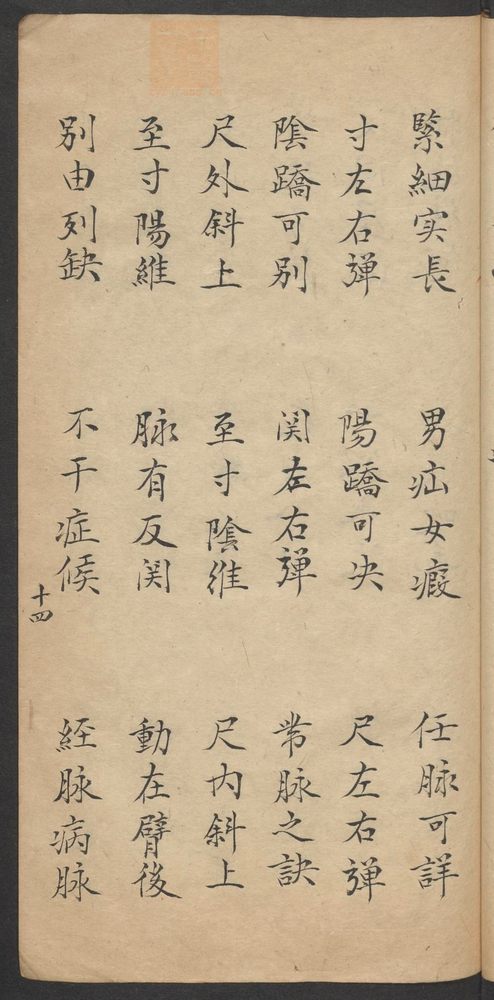 緊細实長　男疝女瘕　任脉可詳
寸左右弹　陽蹻可决　尺左右弹
陰蹻可别　関左右弹　帯脉之訣
尺外斜上　至寸陰維　尺内斜上
至寸陽維　脉有反関　動在臂後
别由列缺　不干症候　経脉病脉
十四